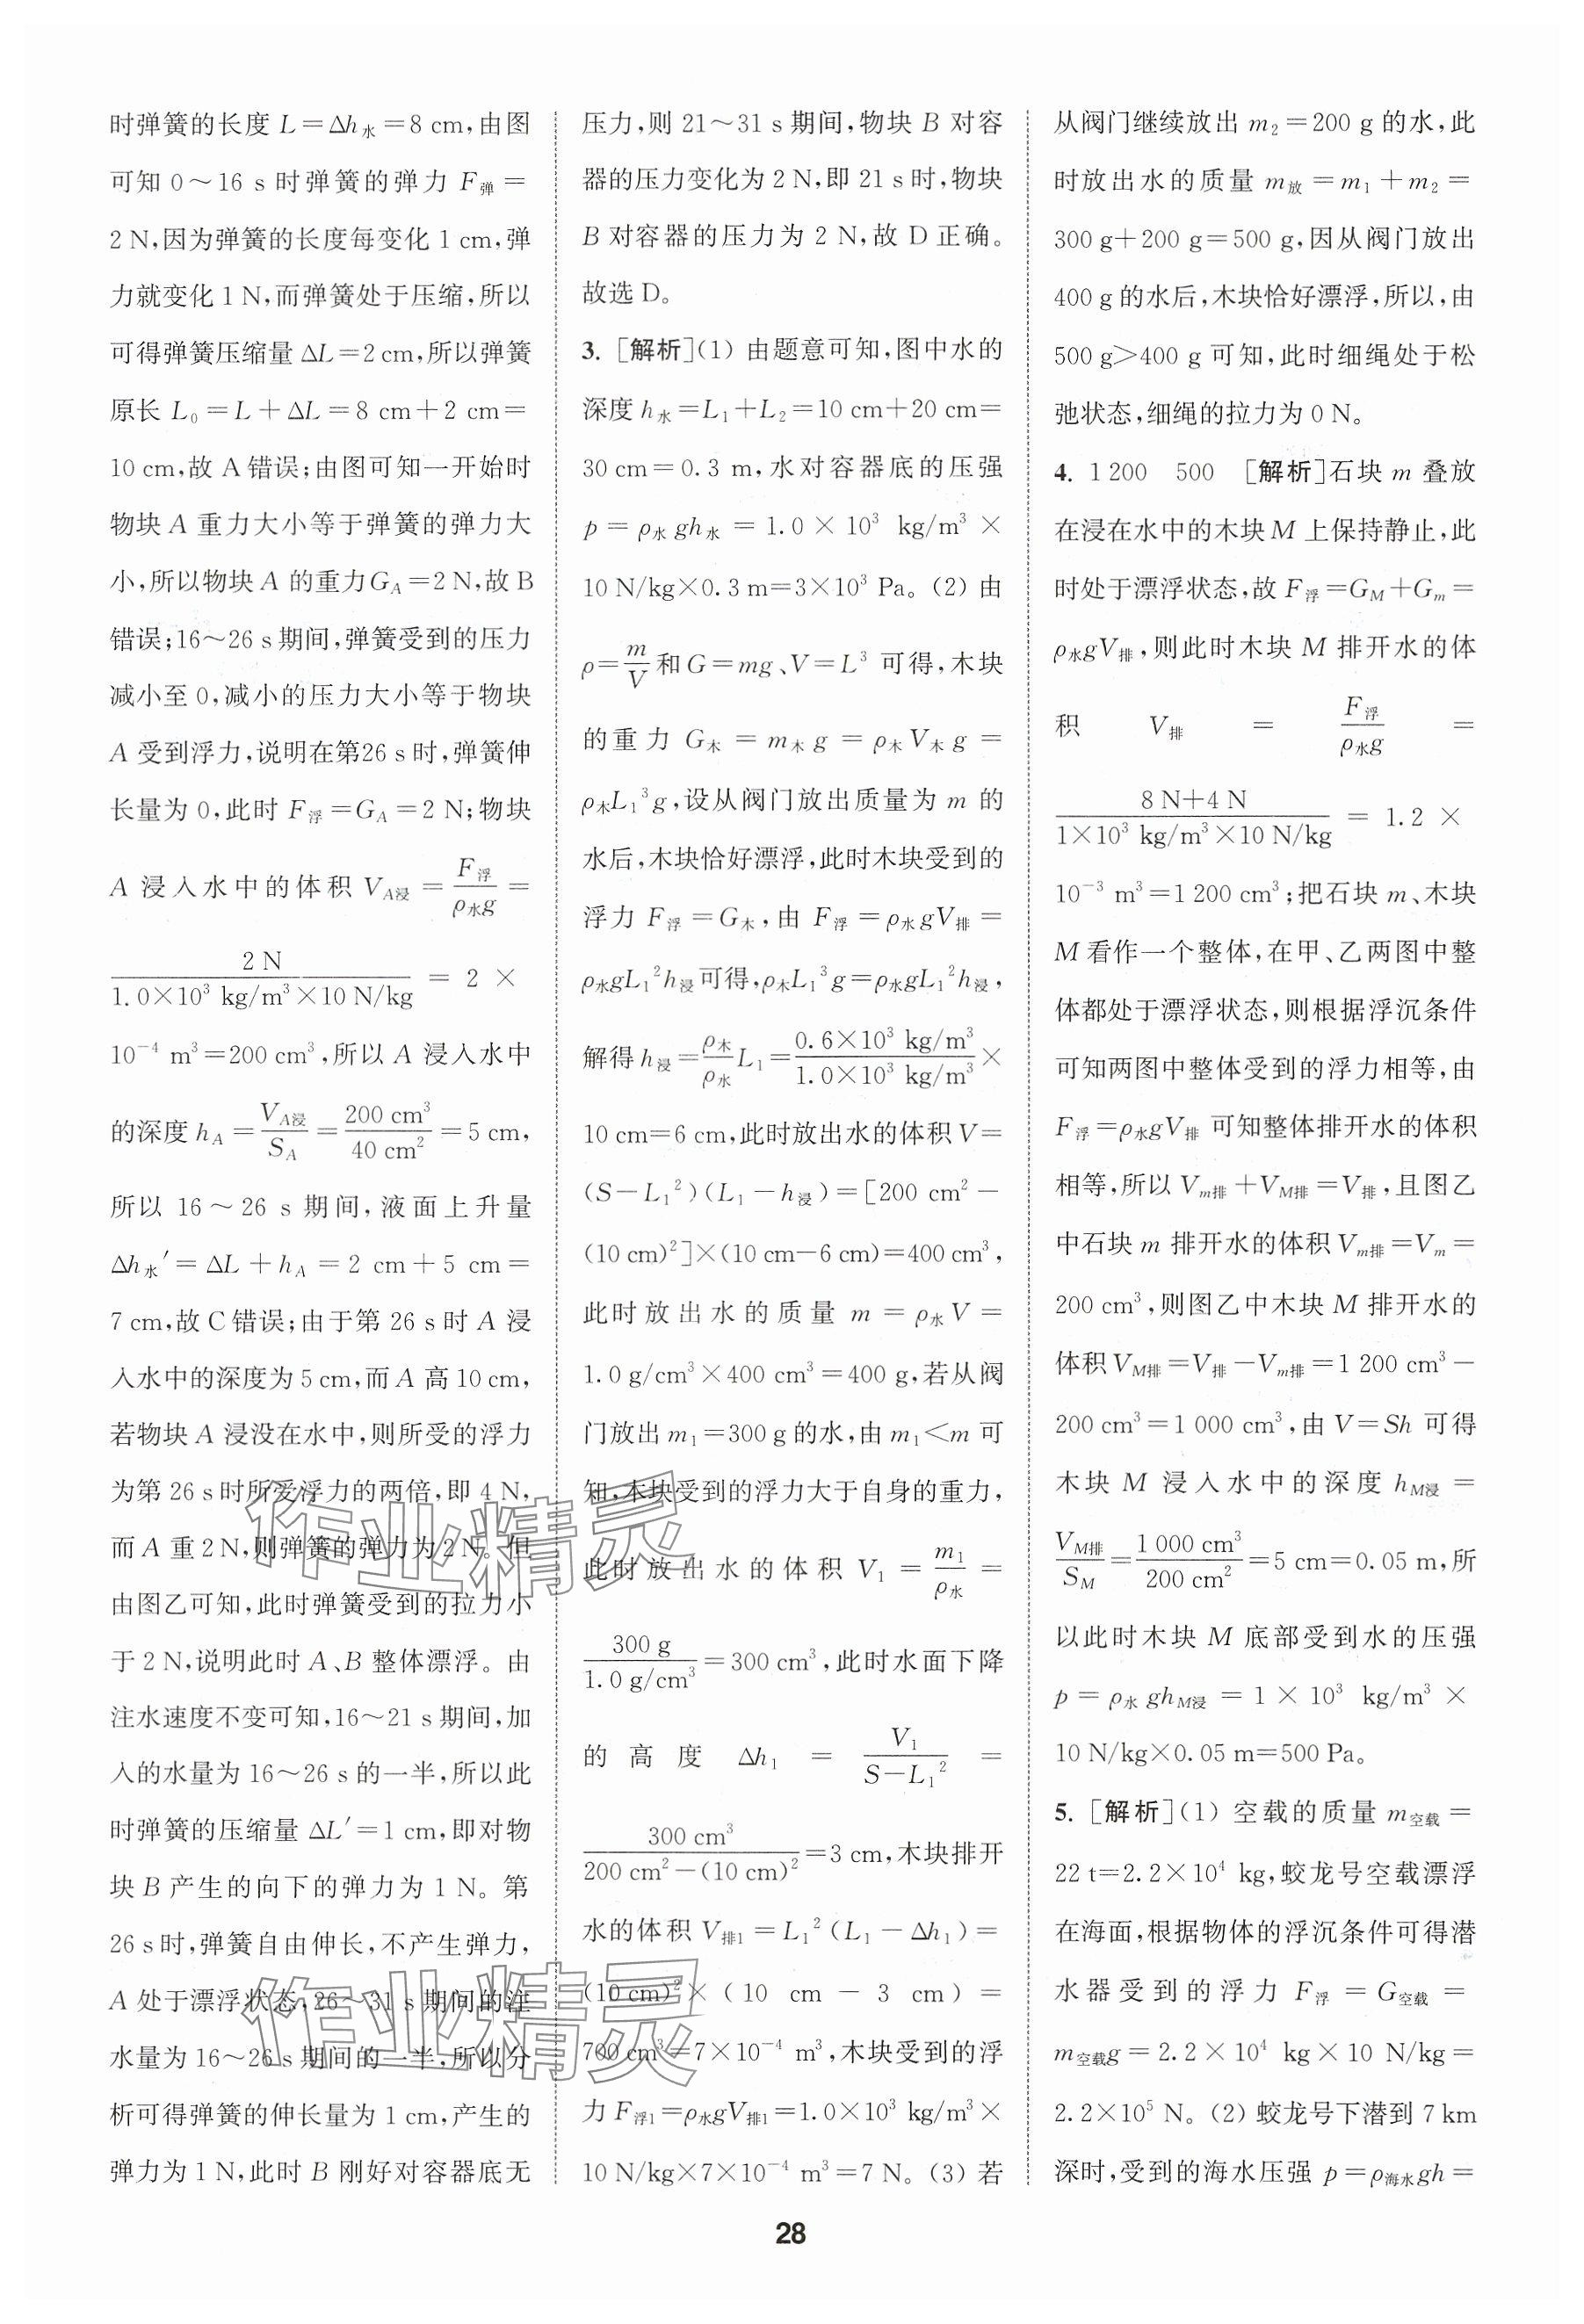 时弹簧的长度 L=Δh水=8 cm,由图
可知 0～16 s 时弹簧的弹力 F弹=
2 N,因为弹簧的长度每变化 1 cm,弹
力就变化 1 N,而弹簧处于压缩,所以
可得弹簧压缩量 ΔL=2 cm,所以弹簧
原长 L₀=L+ΔL=8 cm+2 cm=
10 cm,故 A 错误;由图可知一开始时
物块 A 重力大小等于弹簧的弹力大
小,所以物块 A 的重力 G_A=2 N,故 B
错误;16～26 s 期间,弹簧受到的压力
减小至 0,减小的压力大小等于物块
A 受到浮力,说明在第26 s 时,弹簧伸
长量为 0,此时 F浮=G_A=2 N;物块
A 浸入水中的体积 V_A浸=F浮/ρ水g=
2 N/(1.0×10³ kg/m³×10 N/kg) = 2 ×
10⁻⁴ m³=200 cm³,所以 A 浸入水中
的深度 h_A=V_A浸/S_A=200 cm³/40 cm²=5 cm,
所以 16～26 s 期间,液面上升量
Δh水′=ΔL+h_A=2 cm+5 cm=
7 cm,故 C 错误;由于第 26 s 时 A 浸
入水中的深度为 5 cm,而 A 高 10 cm,
若物块 A 浸没在水中,则所受的浮力
为第 26 s 时所受浮力的两倍,即 4 N,
而 A 重 2 N,则弹簧的弹力为 2 N。但
由图乙可知,此时弹簧受到的拉力小
于 2 N,说明此时 A、B 整体漂浮。由
注水速度不变可知,16～21 s 期间,加
入的水量为 16～26 s 的一半,所以此
时弹簧的压缩量 ΔL′=1 cm,即对物
块 B 产生的向下的弹力为 1 N。第
26 s 时,弹簧自由伸长,不产生弹力,
A 处于漂浮状态,26～31 s 期间的注
水量为 16～26 s 期间的一半,所以分
析可得弹簧的伸长量为 1 cm,产生的
弹力为 1 N,此时 B 刚好对容器底无
压力,则 21～31 s 期间,物块 B 对容
器的压力变化为 2 N,即 21 s 时,物块
B 对容器的压力为 2 N,故 D 正确。
故选 D。
3. [解析](1) 由题意可知,图中水的
深度 h水=L₁+L₂=10 cm+20 cm=
30 cm=0.3 m,水对容器底的压强
p=ρ水gh水=1.0×10³ kg/m³×
10 N/kg×0.3 m=3×10³ Pa。(2) 由
ρ=m/V和 G=mg、V=L³ 可得,木块
的重力 G木=m木g=ρ木V木g=
ρ木L₁³g,设从阀门放出质量为 m 的
水后,木块恰好漂浮,此时木块受到的
浮力 F浮=G木,由 F浮=ρ水gV排=
ρ水gL₁²h浸可得,ρ木L₁³g=ρ水gL₁²h浸,
解得 h浸=ρ木/ρ水 L₁=(0.6×10³ kg/m³)/(1.0×10³ kg/m³)×
10 cm=6 cm,此时放出水的体积 V=
(S-L₁²)(L₁-h浸)=[200 cm²-
(10 cm)²]×(10 cm-6 cm)=400 cm³,
此时放出水的质量 m=ρ水V=
1.0 g/cm³×400 cm³=400 g,若从阀
门放出 m₁=300 g 的水,由 m₁<m 可
知,木块受到的浮力大于自身的重力,
此时放出水的体积 V₁=m₁/ρ水=
300 g/(1.0 g/cm³)=300 cm³,此时水面下降
的高度 Δh₁=V₁/(S-L₁²)=
300 cm³/(200 cm²-(10 cm)²)=3 cm,木块排开
水的体积 V排1=L₁²(L₁-Δh₁)=
(10 cm)²×(10 cm-3 cm)=
700 cm³=7×10⁻⁴ m³,木块受到的浮
力 F浮1=ρ水gV排1=1.0×10³ kg/m³×
10 N/kg×7×10⁻⁴ m³=7 N。(3) 若
从阀门继续放出 m₂=200 g 的水,此
时放出水的质量 m放=m₁+m₂=
300 g+200 g=500 g,因从阀门放出
400 g 的水后,木块恰好漂浮,所以,由
500 g>400 g 可知,此时细绳处于松
弛状态,细绳的拉力为 0 N。
4. 1 200 500 [解析]石块 m 叠放
在浸在水中的木块 M 上保持静止,此
时处于漂浮状态,故 F浮=G_M+G_m=
ρ水gV排,则此时木块 M 排开水的体
积 V排 = F浮/ρ水g =
(8 N+4 N)/(1×10³ kg/m³×10 N/kg) = 1.2 ×
10⁻³ m³=1 200 cm³;把石块 m、木块
M 看作一个整体,在甲、乙两图中整
体都处于漂浮状态,则根据浮沉条件
可知两图中整体受到的浮力相等,由
F浮=ρ水gV排 可知整体排开水的体积
相等,所以 V_m排+V_M排=V排,且图乙
中石块 m 排开水的体积 V_m排=V_m=
200 cm³,则图乙中木块 M 排开水的
体积 V_M排=V排-V_m排=1 200 cm³-
200 cm³=1 000 cm³,由 V=Sh 可得
木块 M 浸入水中的深度 h_M浸=
V_M排/S_M=1 000 cm³/200 cm²=5 cm=0.05 m,所
以此时木块 M 底部受到水的压强
p=ρ水gh_M浸=1×10³ kg/m³×
10 N/kg×0.05 m=500 Pa。
5. [解析](1) 空载的质量 m空载=
22 t=2.2×10⁴ kg,蛟龙号空载漂浮
在海面,根据物体的浮沉条件可得潜
水器受到的浮力 F浮=G空载=
m空载g=2.2×10⁴ kg×10 N/kg=
2.2×10⁵ N。(2) 蛟龙号下潜到 7 km
深时,受到的海水压强 p=ρ海水gh=
作业精灵
作业精灵
28